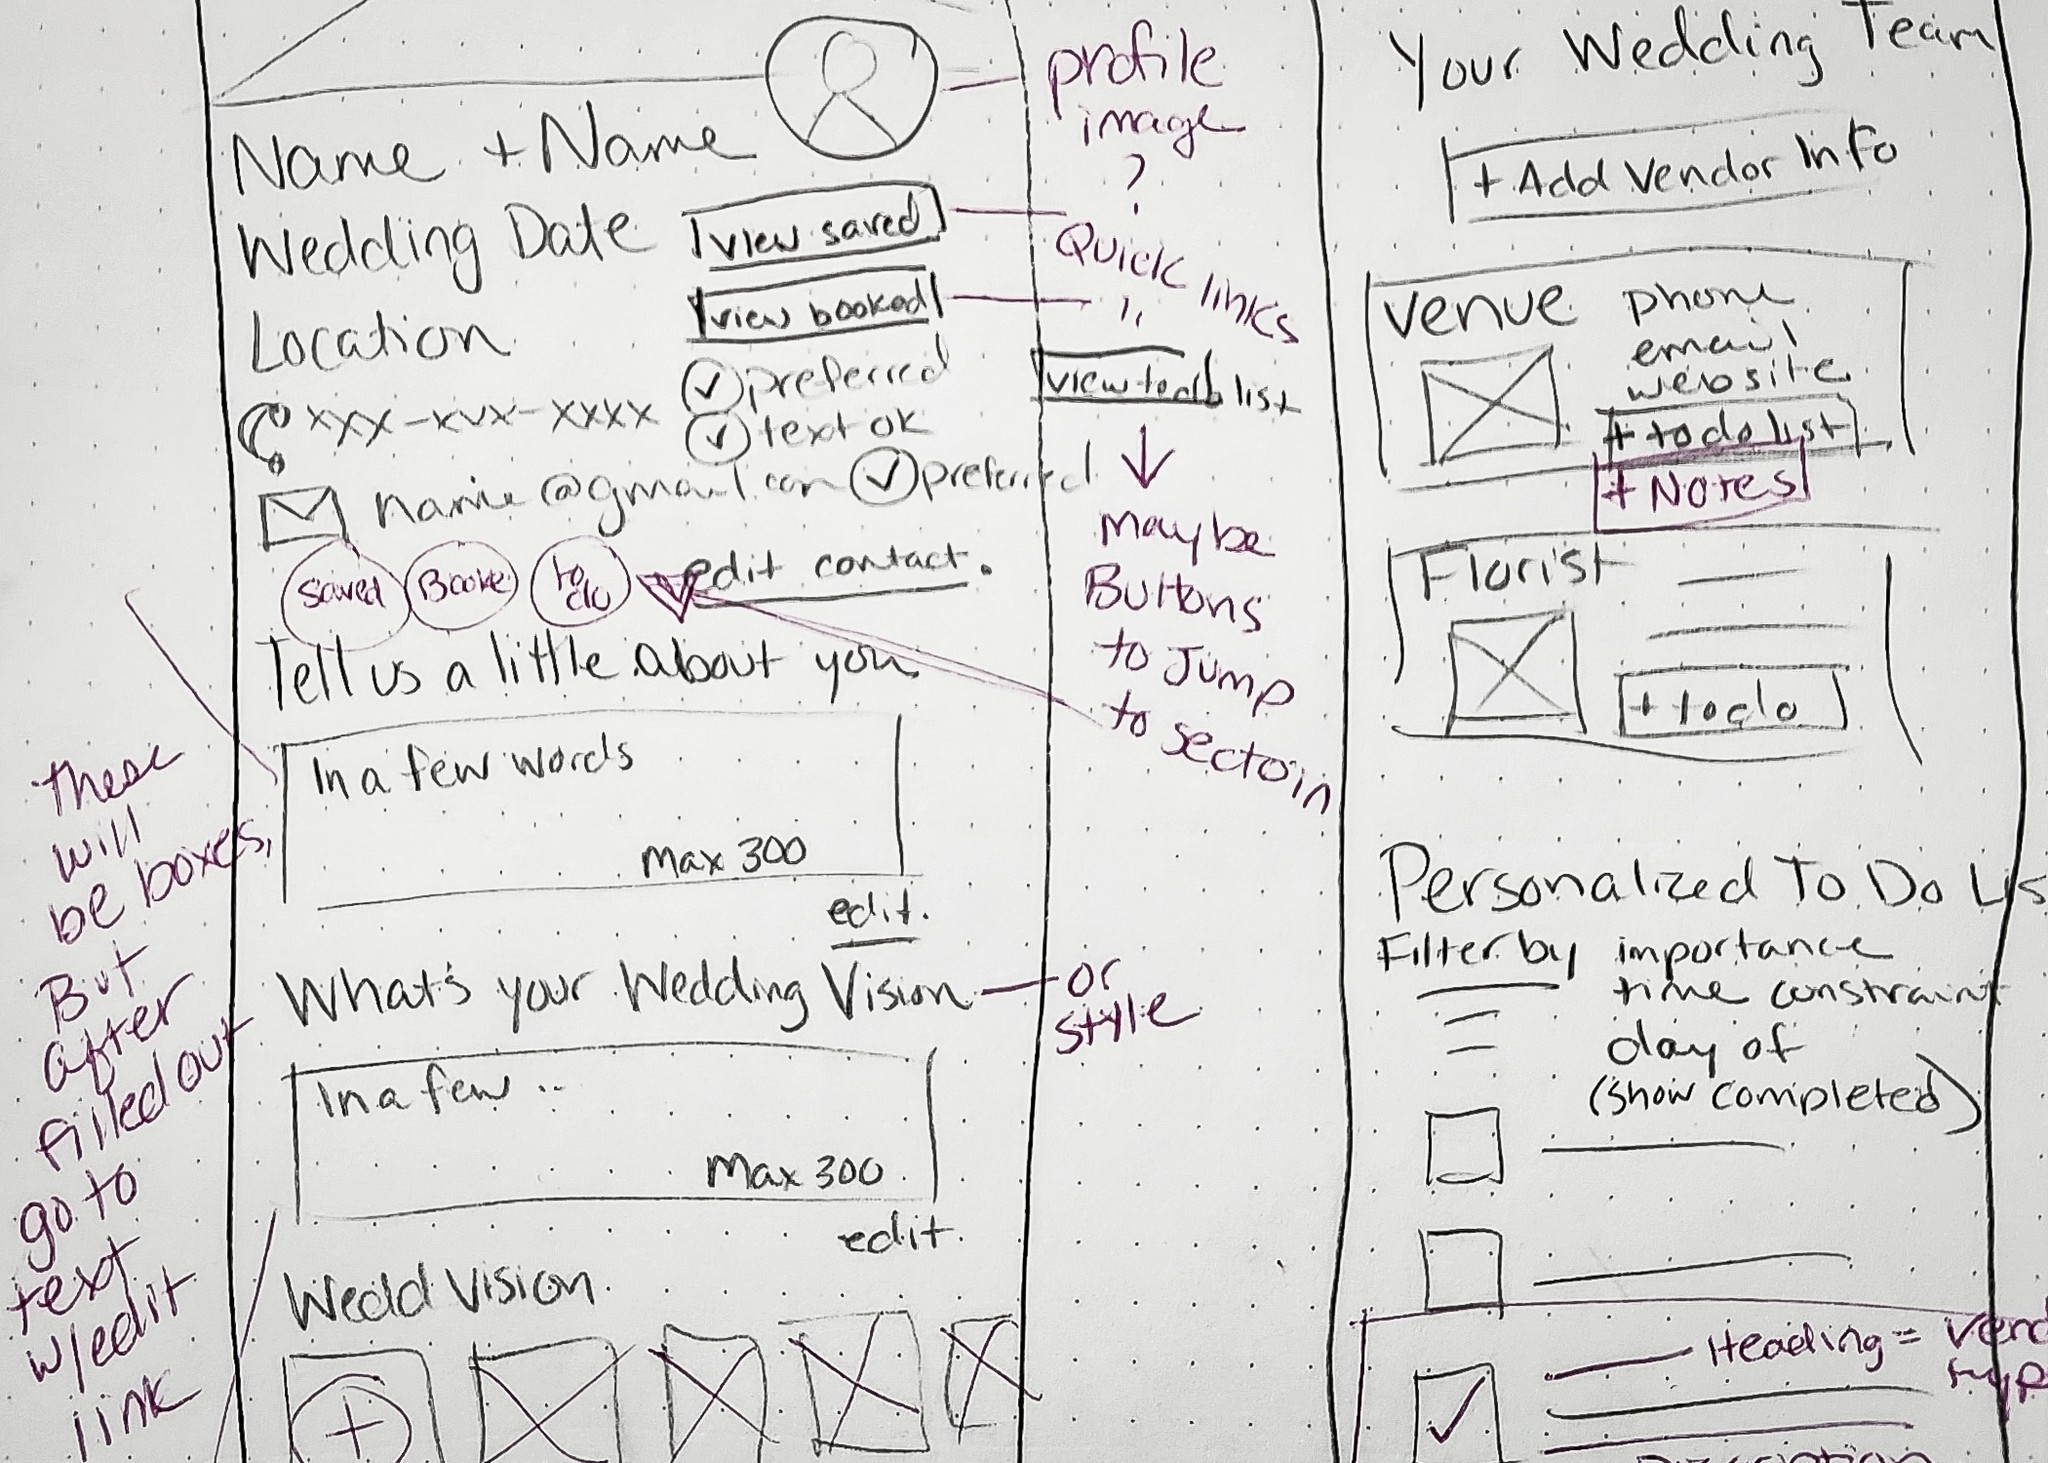 Name + Name
Wedding Date
view saved
view booked
Location
xxx-xxx-xxxx
preferred
text ok
name@gmail.com
preferred
saved
Booke
to
do
edit contact.
Tell us a little about you
In a few words
Max 300
edit.
What's your Wedding Vision
In a few ..
Max 300
edit.
Wedd Vision
these
will
be boxes,
But
after
filled out
go to
text
w/edit
link
profile
image
?
Quick links
"
view todo list
maybe
Buttons
to Jump
to sectoin
or
style
Your Wedding Team
+ Add Vendor Info
Venue
phone
email
website
+ todo list
+ Notes
Florist
+ todo
Personalized To Do Lis
Filter by importance
time constraint
day of
(show completed)
Heading = vend
typ
Discription